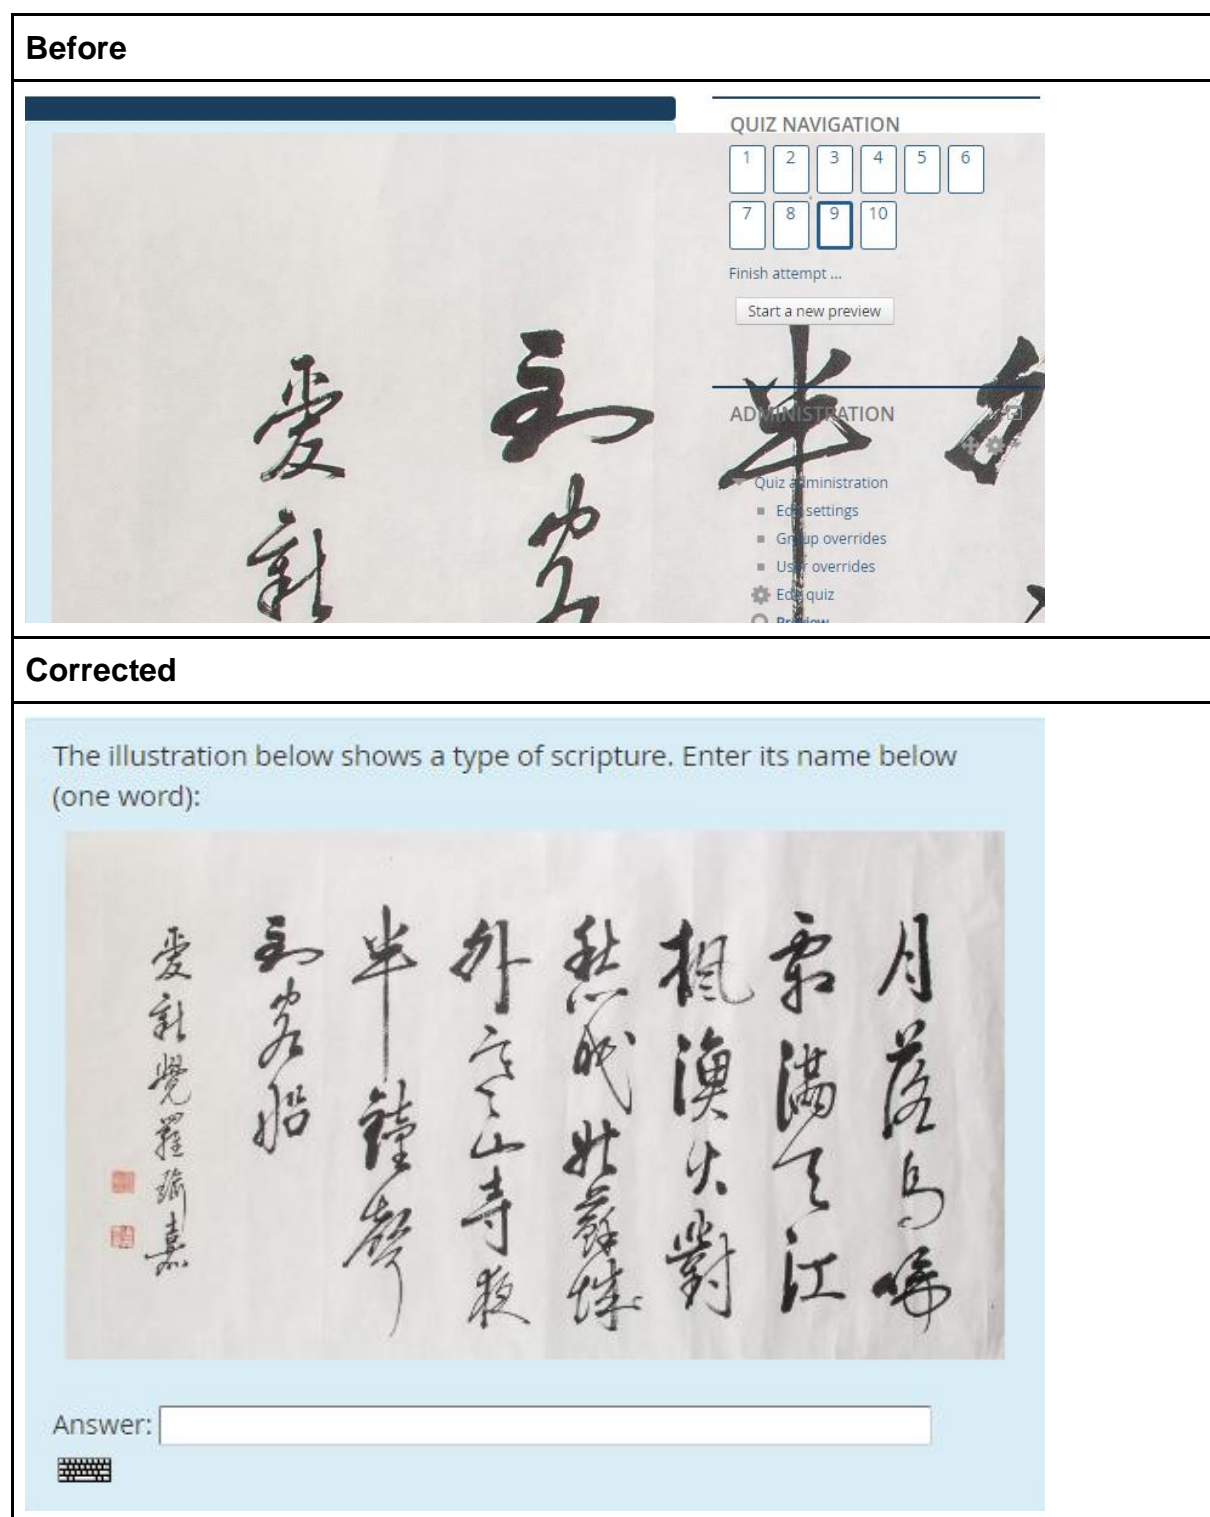 Before
QUIZ NAVIGATION
1 2 3 4 5 6
7 8 9 10
Finish attempt ...
Start a new preview
ADMINISTRATION
Quiz administration
Edit settings
Group overrides
User overrides
Edit quiz
Preview
外
半
到客
愛新
Corrected
The illustration below shows a type of scripture. Enter its name below
(one word):
月落烏啼
霜滿天江
楓漁火對
愁眠姑蘇城
外寒山寺夜
半鐘聲
到客船
愛新覺羅瑜嘉
Answer: